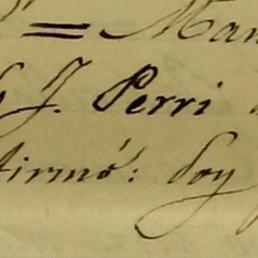 = Man
J. Perri
firmó: Doy